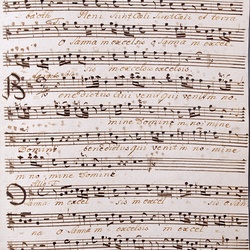 baoth Pleni sunt Cæli sunt Cæli et terra
O sanna in excelsis o sanna in excel
sis in excelsis excelsis
Benedictus qui venit qui venit in no
mine Domine in no, mine
Domine benedictus qui venit in no mine
in no, mine Domine
O sanna in excel sis in excel sis o san
na o sanna in excel sis in excel